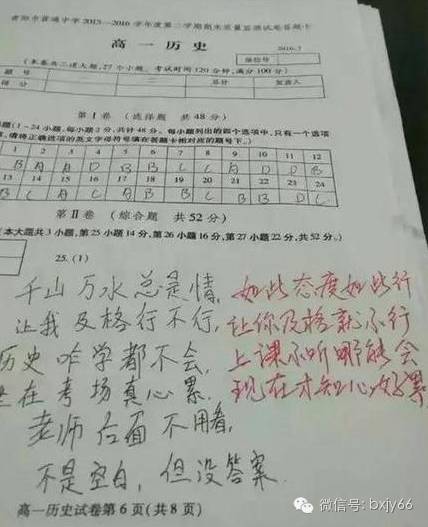 贵阳市普通中学2015—2016学年度第二学期期末质量监测试卷答题卡
高一历史
2016.7
座位号
(本卷共三道大题,27个小题。考试时间120分钟,满分100分)
题号 一 二 三 总计 复查人
得分
第Ⅰ卷 (选择题 共48分)
题(1~24小题,每小题2分,共计48分。每小题列出的四个选项中,只有一个选项
,请将正确选项的英文字母符号填在答题卡相对应的题号下。)
1 2 3 4 5 6 7 8 9 10 11 12
B A A D B B C C A D D B
13 14 15 16 17 18 19 20 21 22 23 24
B C A C A B B C B B D C
第Ⅱ卷 (综合题 共52分)
(本大题共3小题,第25小题14分,第26小题16分,第27小题22分,共52分。)
25.(1)
千山万水总是情,
让我及格行不行,
历史咋学都不会,
坐在考场真心累,
老师后面不用看,
不是空白,但没答案.
如此态度如此行
让你及格就不行
上课不听哪能会
现在才知心好累
高一历史试卷第6页(共8页)
微信号: bxjy66